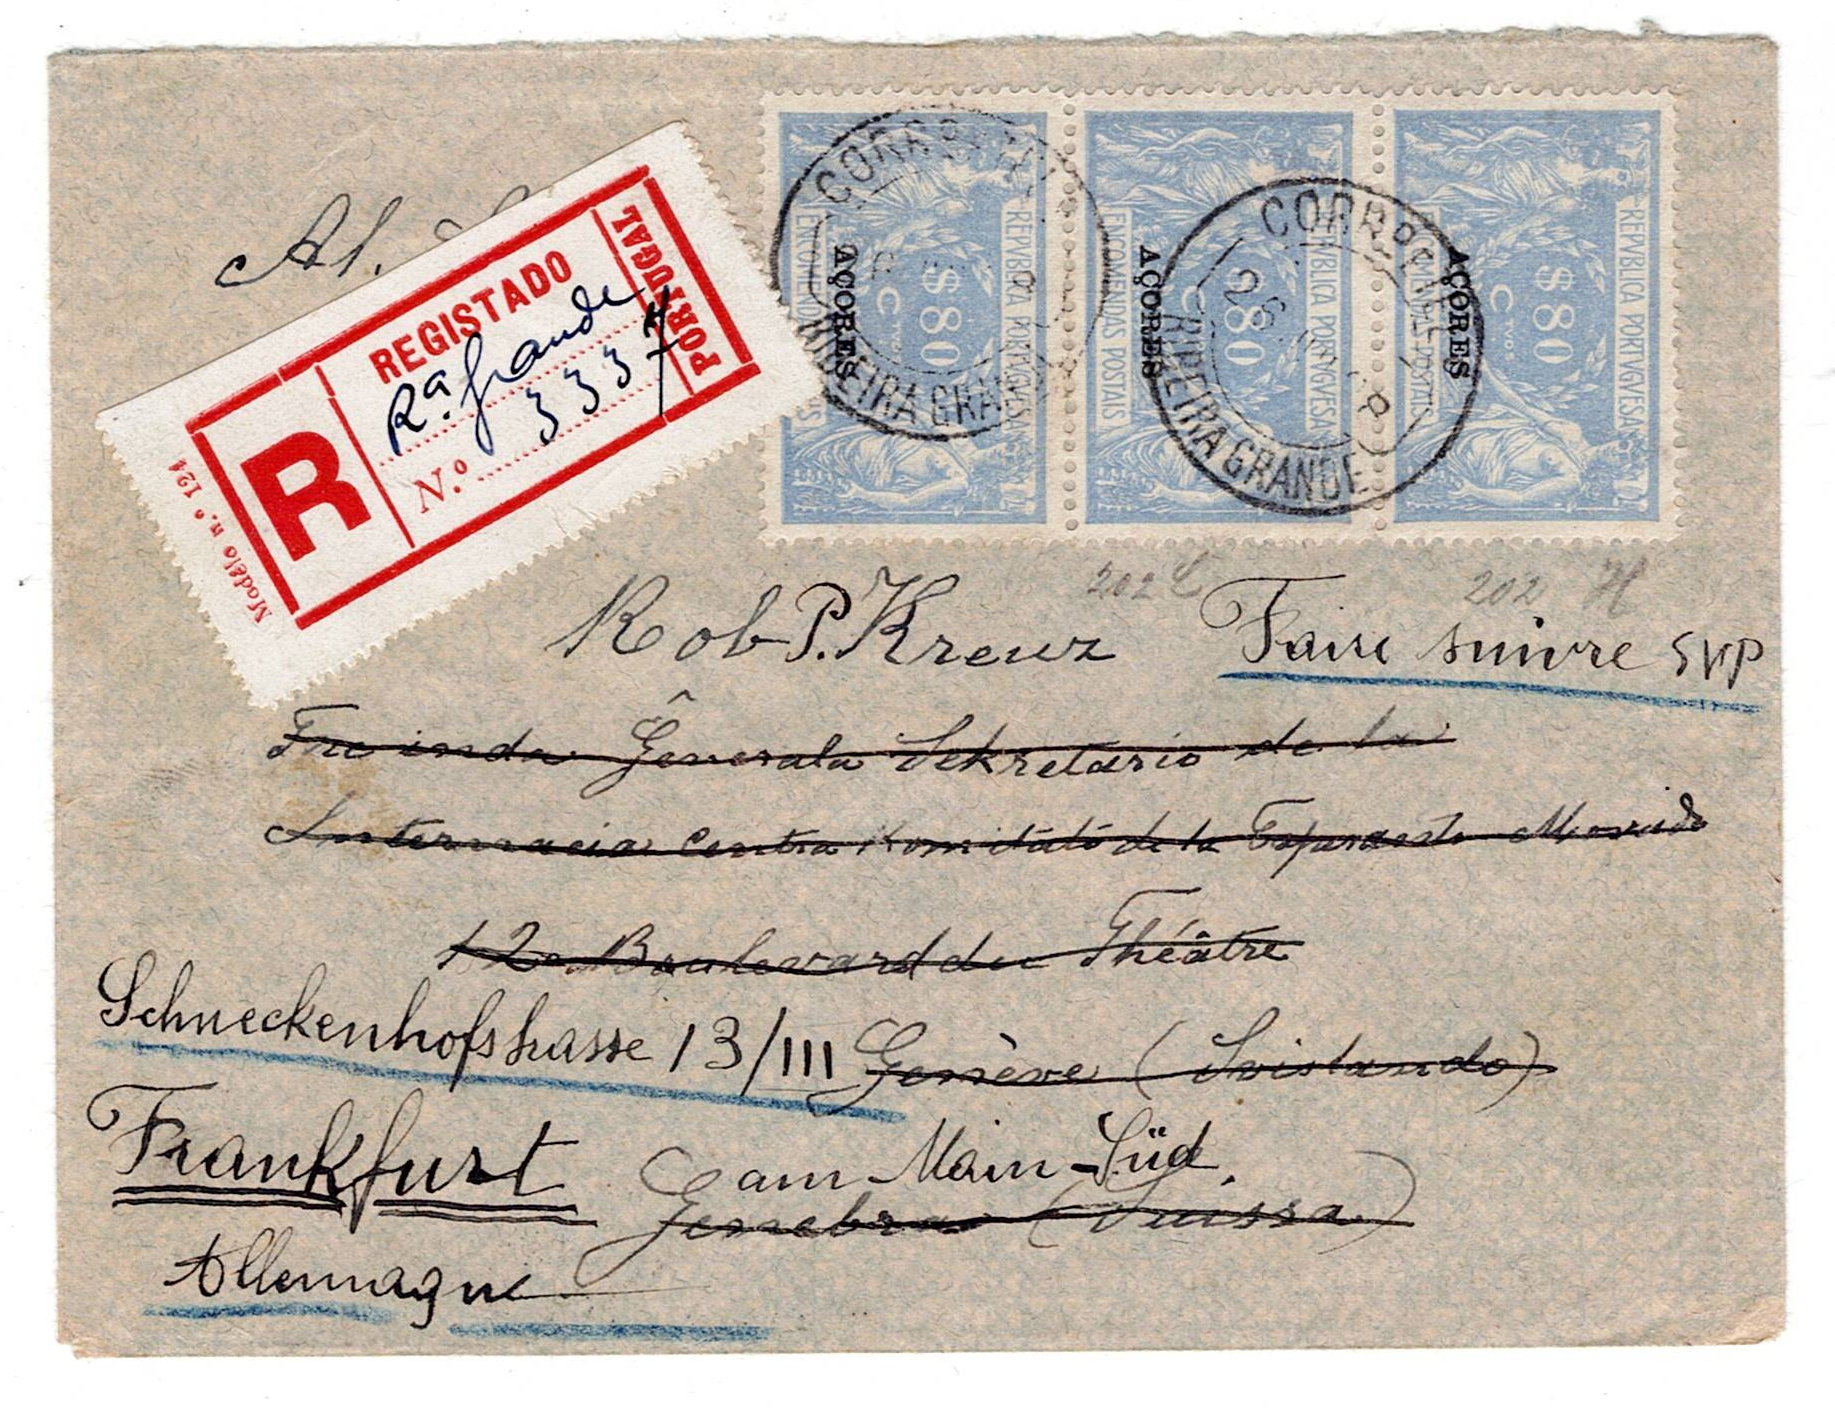 Al.
REGISTADO
PORTUGAL
R
Rª. Grande
N.º 3337
Modêlo n.º 124
REPVBLICA PORTVGVESA
$80
C.VOS
ENCOMENDAS POSTAIS
AÇORES
REPVBLICA PORTVGVESA
$80
C.VOS
ENCOMENDAS POSTAIS
AÇORES
REPVBLICA PORTVGVESA
$80
C.VOS
ENCOMENDAS POSTAIS
AÇORES
CORRº
RIBEIRA GRANDE
CORRº
RIBEIRA GRANDE
202 202 H
Rob P. Kreuz
Faire suivre SVP
Generala Sekretario de la
Internacia Centra Komitato de la Esperanto Movado
12 Boulevard du Théâtre
Schneckenhofstrasse 13/III
Genève (Svislando)
Frankfurt am Main-Süd
Genebra (Suissa)
Allemagne